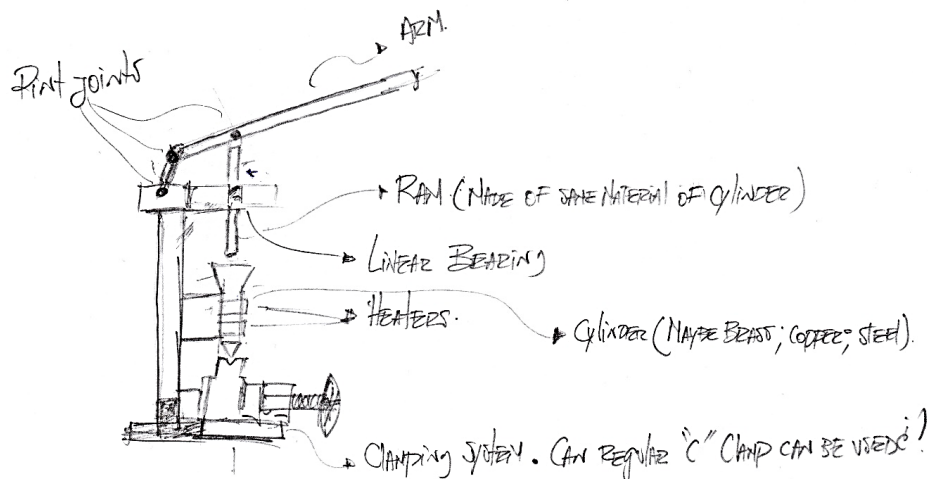 ARM.
Pint joints
RAM (MADE OF SAME MATERIAL OF CYLINDER)
LINEAR BEARING
HEATERS.
CYLINDER (MAYBE BRASS; COPPER; STEEL).
CLAMPING SYSTEM. CAN REGULAR "C" CLAMP CAN BE USED?